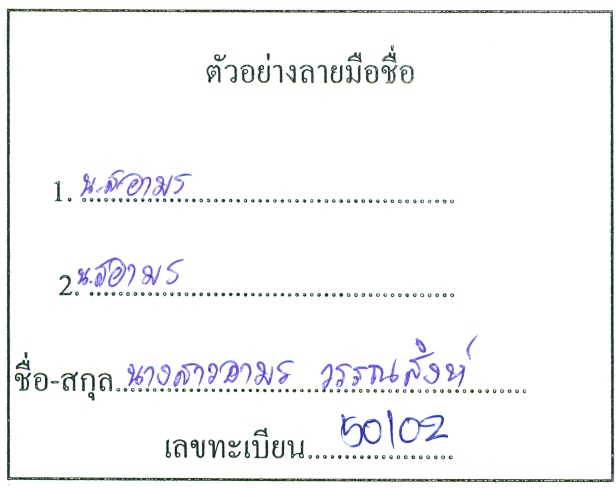 ตัวอย่างลายมือชื่อ
1. น.ส.อามร
2. น.ส.อามร
ชื่อ-สกุล นางสาวอามร วรรณสิงห์
เลขทะเบียน 50102